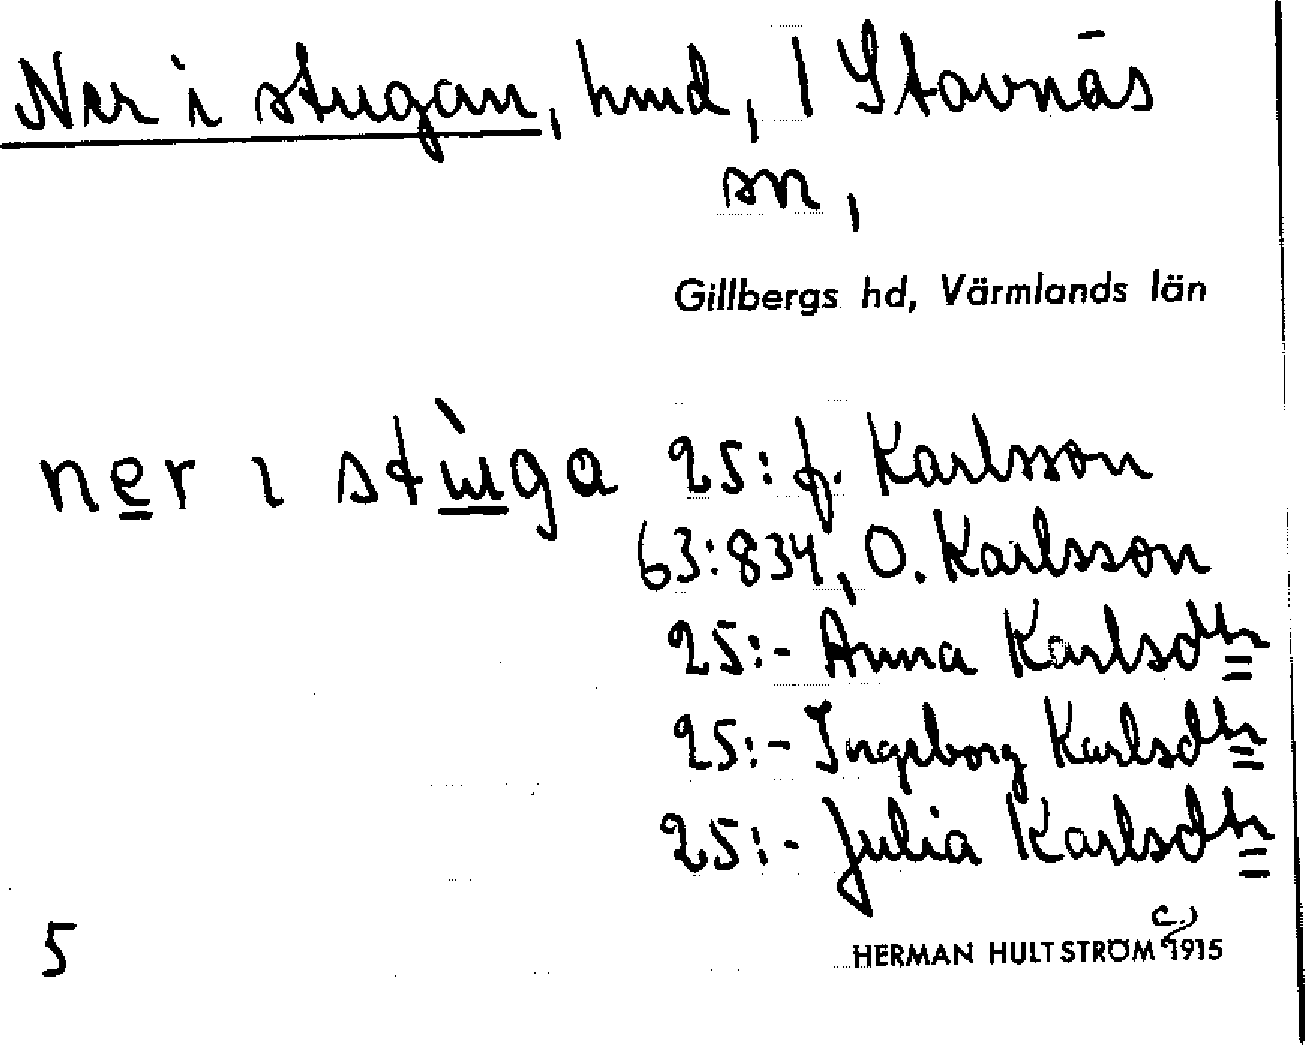 Ner i stugan, hmd, 1 Stavnäs
sn,
Gillbergs hd, Värmlands län
ner ı stùga 25: J. Karlsson
63:834, O. Karlsson
25:- Anna Karlsdtr
25:- Ingeborg Karlsdtr
25:- Julia Karlsdtr
5
HERMAN HULTSTRÖM c.) 1915